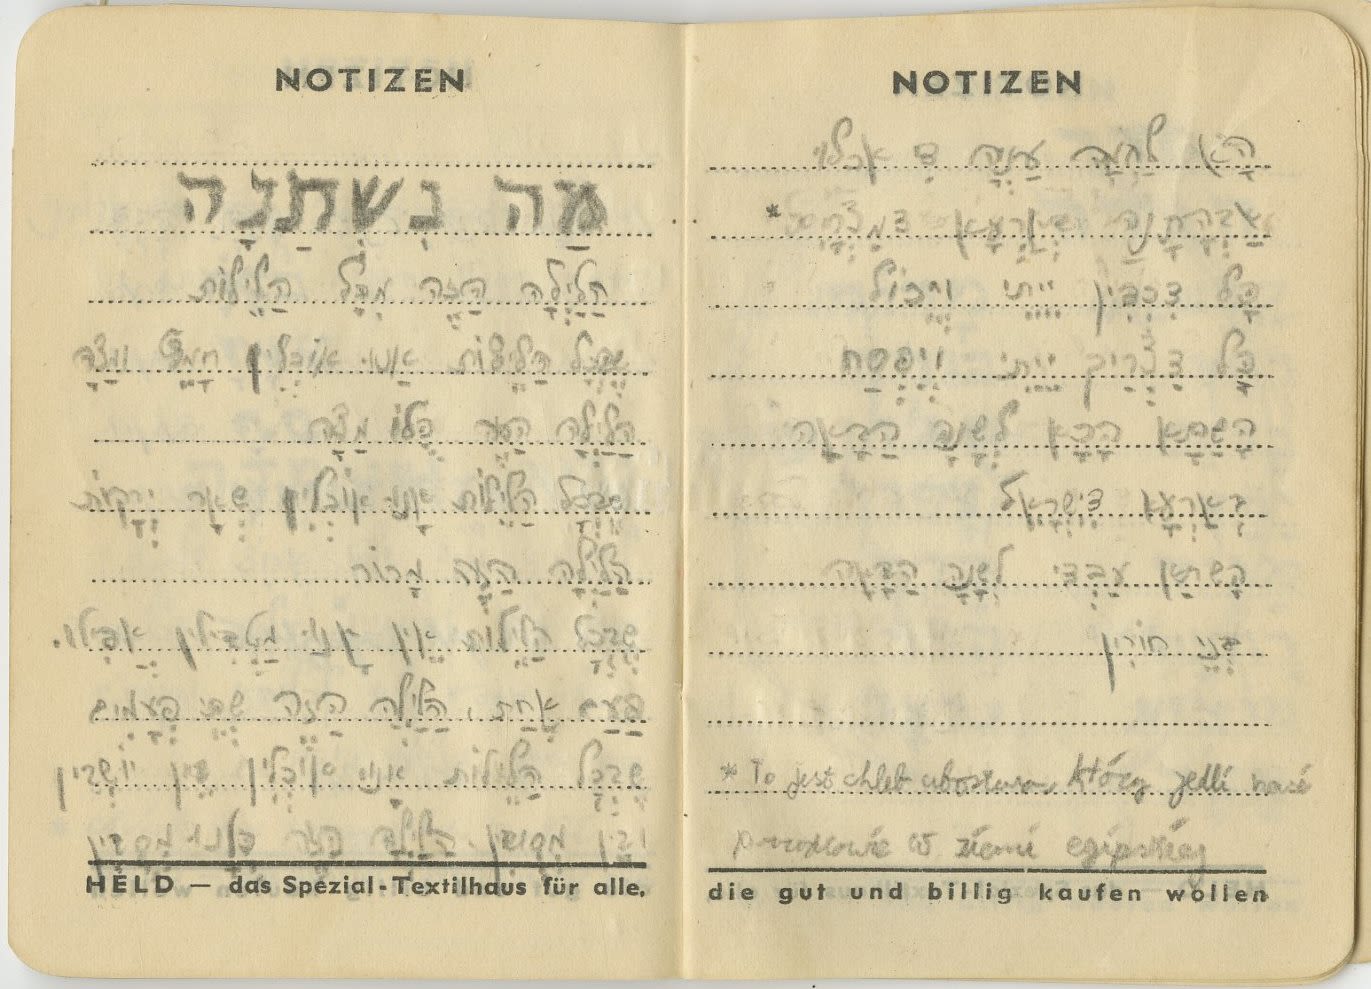 NOTIZEN
מַה נִשְׁתַּנָה
הַלַּיְלָה הַזֶּה מִכָּל הַלֵּילוֹת
שֶׁבְּכָל הַלֵּילוֹת אָנוּ אוֹכְלִין חָמֵץ וּמַצָּה
הַלַּיְלָה הַזֶּה כֻּלּוֹ מַצָּה
שֶׁבְּכָל הַלֵּילוֹת אָנוּ אוֹכְלִין שְׁאָר יְרָקוֹת
הַלַּיְלָה הַזֶּה מָרוֹר
שֶׁבְּכָל הַלֵּילוֹת אֵין אָנוּ מַטְבִּילִין אֲפִילוּ
פַּעַם אֶחָת, הַלַּיְלָה הַזֶּה שְׁתֵּי פְּעָמִים
שֶׁבְּכָל הַלֵּילוֹת אָנוּ אוֹכְלִין בֵּין יוֹשְׁבִין
וּבֵין מְסֻבִּין הַלַּיְלָה הַזֶּה כֻּלָּנוּ מְסֻבִּין
HELD — das Spezial-Textilhaus für alle,
NOTIZEN
הָא לַחְמָה עַנְיָה דִּ אֲכָלוּ
אַבְהָתָנָה בְּאַרְעָא דְּמִצְרָיִם *
כָּל דִּכְפִין יֵיתֵי וְיֵכוֹל
כָּל דִּצְרִיךְ יֵיתֵי וְיִפְסַח
הָשַׁתָּא הָכָא לְשָׁנָה הַבָּאָה
בְּאַרְעָא דְיִשְׂרָאֵל
הָשַׁתָּא עַבְדֵי לְשָׁנָה הַבָּאָה
בְּנֵי חוֹרִין
* To jest chleb ubostwa, który jedli nasi
przodkowie w ziemi egipskiej
die gut und billig kaufen wollen